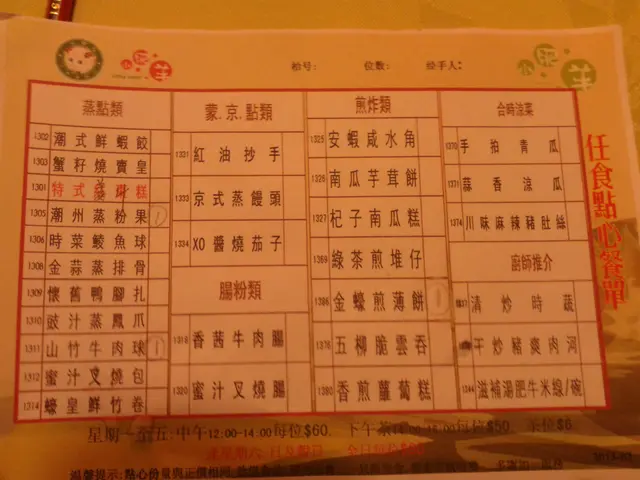 小肥羊
枱号: 位数: 经手人:
小肥羊
蒸點類
1302 潮式鮮蝦餃
1303 蟹籽燒賣皇
1301 特式
1305 潮州蒸粉果
1306 時菜鯪魚球
1308 金蒜蒸排骨
1309 懷舊鴨腳扎
1310 豉汁蒸鳳爪
1311 山竹牛肉球
1312 蜜汁叉燒包
1314 蠔皇鮮竹卷
蒙.京.點類
1331 紅油抄手
1333 京式蒸饅頭
1334 XO醬燒茄子
腸粉類
1318 香茜牛肉腸
1320 蜜汁叉燒腸
煎炸類
1325 安蝦咸水角
1326 南瓜芋茸餅
1327 杞子南瓜糕
1369 綠茶煎堆仔
1386 金蠔煎薄餅
1376 五柳脆雲吞
1380 香煎蘿蔔糕
合時涼菜
1370 手拍青瓜
1371 蒜香涼瓜
1374 川味麻辣豬肚絲
廚師推介
清炒時蔬
干炒豬爽肉河
1344 滋補湯肥牛米線/碗
任食點心餐單
星期一至五:中午12:00-14:00每位$60. 下午茶14:00-16:00每位$50. 茶位$6
逢星期六.日及假日 全日每位
溫馨提示:點心份量與正價相同